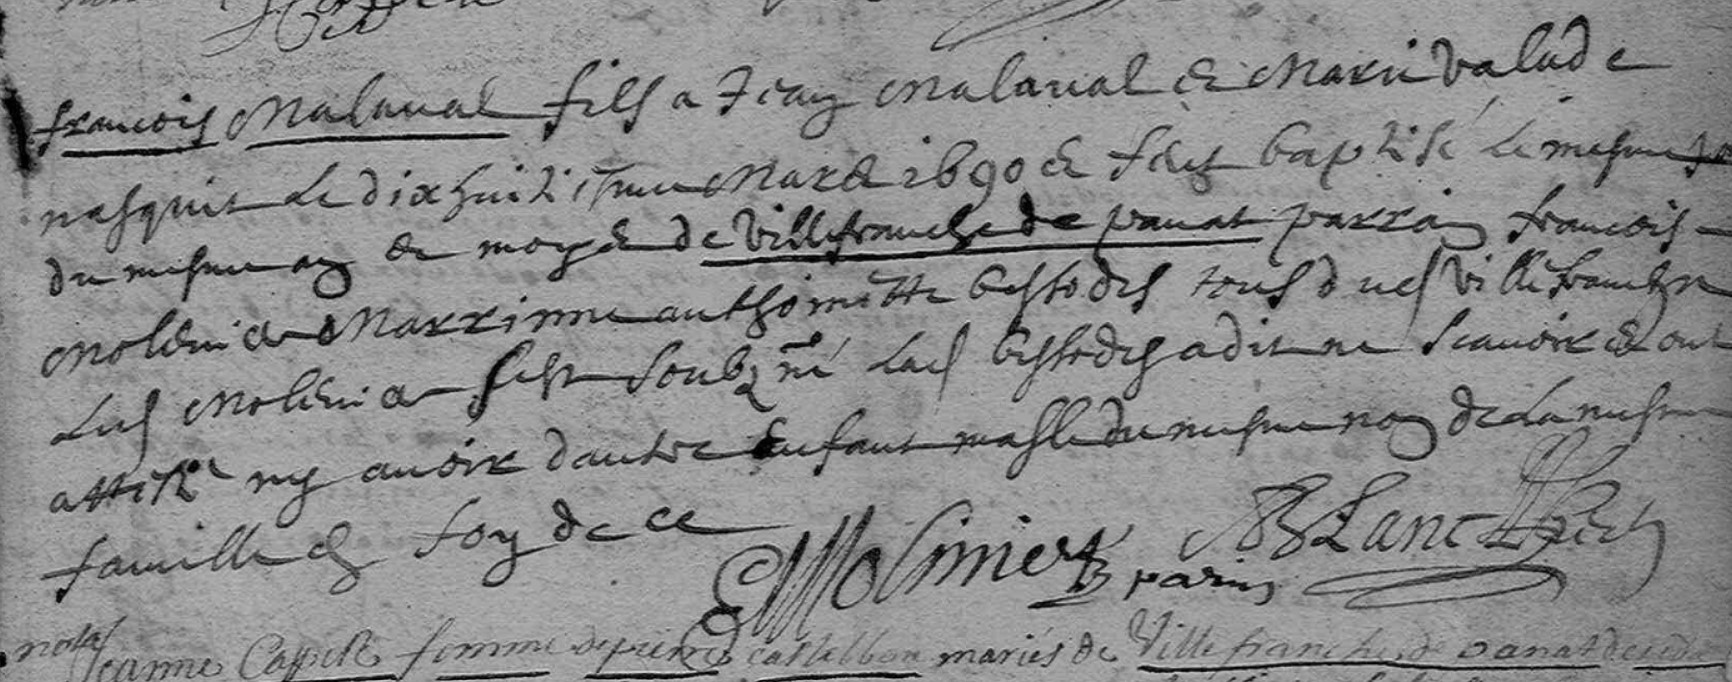 francois Malaual fils a Jean Malaual & Marie Valade
nasquit le dixhuitiesme Mars 1690 & feut baptisé le mesme jo
du mesme an & moys de Villefranche de panat parrain francois
Molenier Marrinne anthoinette bestodes tous dud Villefranche
Led Molenier sest soubzné lad bestodes a dit ne scauoir & ont
attesté ny auoir dautre enfant masle du mesme nom de la mesme
famille en foy de ce
Molinier parin Blanc
nota Jeanne femme de pierre mariés de Villefranche de panat